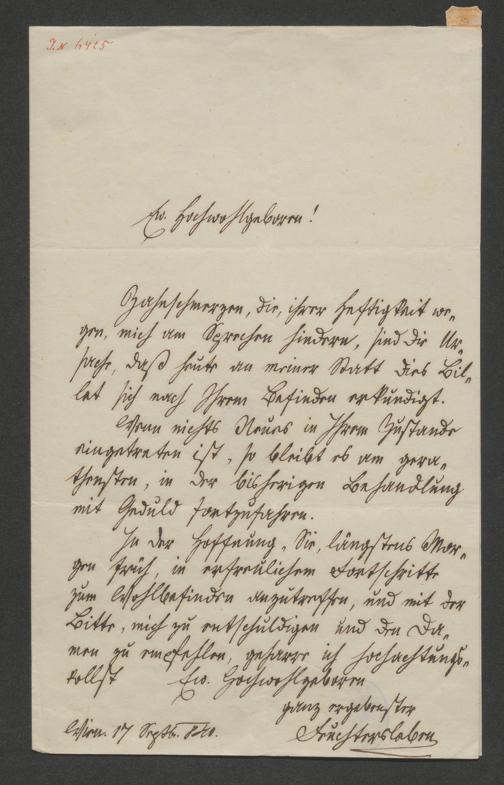 I.N. 4925
Ew. Hochwohlgeboren!
Zahnschmerzen, die, ihrer Heftigkeit we-
gen, mich am Sprechen hindern, sind die Ur-
sache, daß heute an meiner Statt dies Bil-
let sich nach Ihrem Befinden erkundigt.
Wenn nichts Neues in Ihrem Zustande
eingetreten ist, so bleibt es am gera-
thensten, in der bisherigen Behandlung
mit Geduld fortzufahren.
In der Hoffnung, Sie, längstens Mor-
gen früh, in erfreulichem Fortschritte
zum Wohlbefinden anzutreffen, und mit der
Bitte, mich zu entschuldigen und den Da-
men zu empfehlen, geharre ich hochachtungs-
vollst Ew. Hochwohlgeboren
ganz ergebenster
Wien. 17 Septb. Feuchtersleben